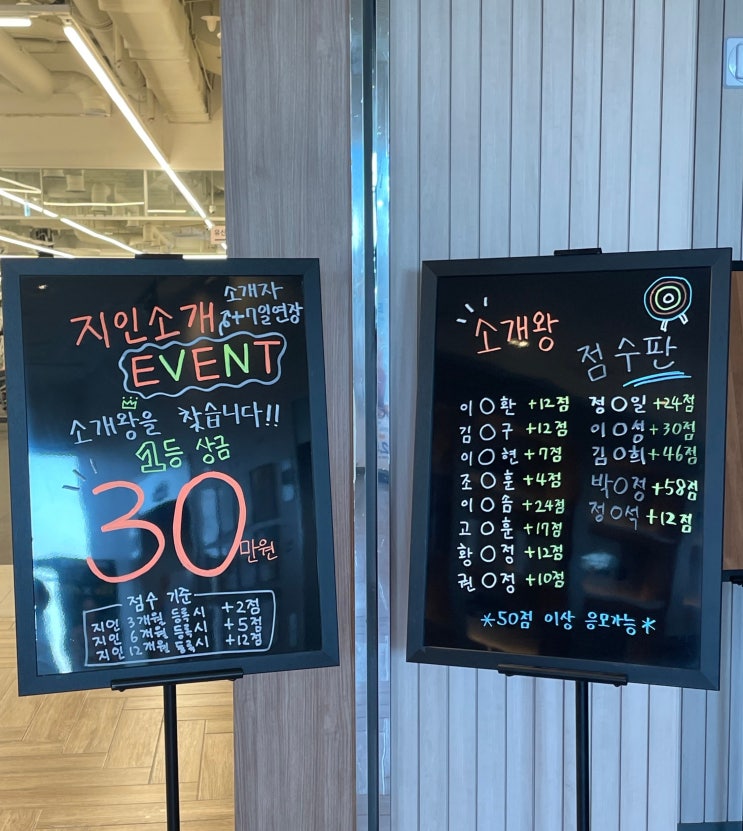 지인소개
소개자
+7일연장
EVENT
소개왕을 찾습니다!!
1등 상금
30만원
점수 기준
지인 3개월 등록시 +2점
지인 6개월 등록시 +5점
지인 12개월 등록시 +12점
소개왕
점수판
이○환 +12점
김○구 +12점
이○현 +7점
조○훈 +4점
이○솜 +24점
고○훈 +17점
황○정 +12점
권○정 +10점
정○일 +24점
이○성 +30점
김○희 +46점
박○정 +58점
정○석 +12점
*50점 이상 응모가능*